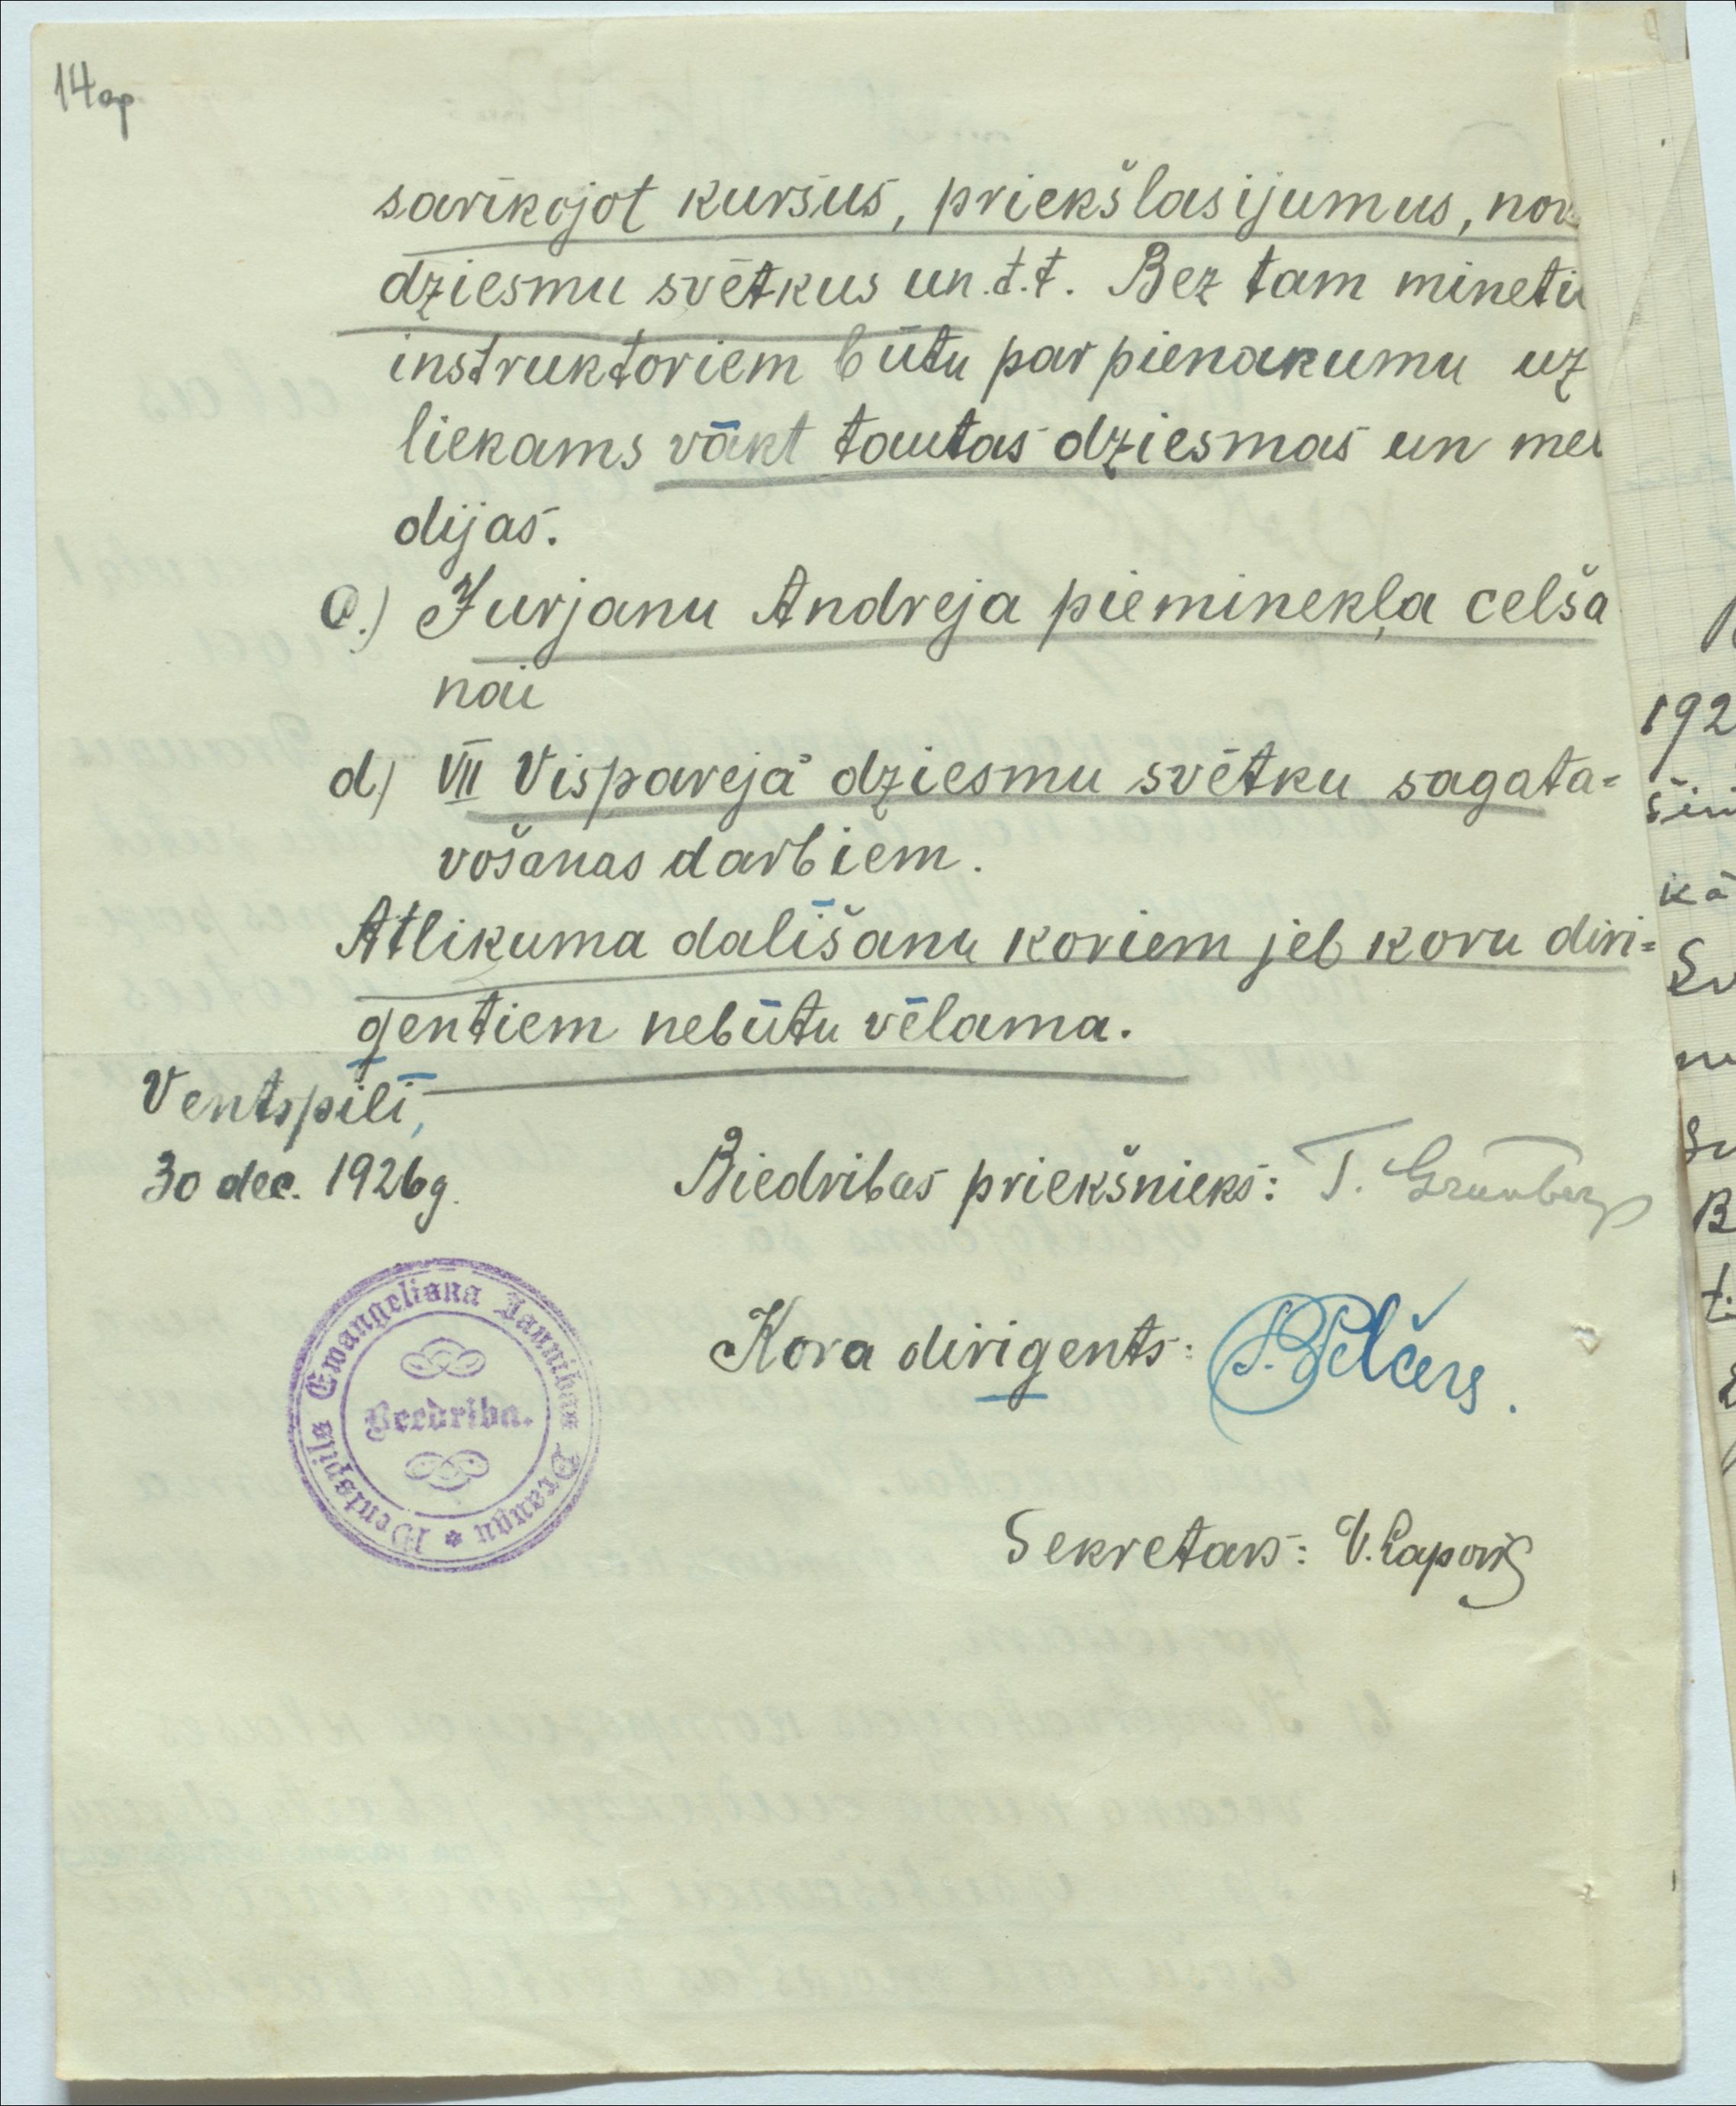 14 op
sarīkojot kursus, priekšlasijumus, nov
dziesmu svētkus un.t.t. Bez tam mineti
instruktoriem būtu par pienakumu uz
liekams vākt tautas dziesmas un mel
dijas.
c.) Jurjanu Andreja pieminekļa celša
nai
d) VII Vispareja dziesmu svētku sagata=
vošanas darbiem.
Atlikuma dalīšanu koriem jeb koru diri=
gentiem nebūtu vēlama.
Ventspilī,
30 dec. 1926 g.
Biedribas priekšnieks: T. Grunbergs
Kora dirigents: Pelčers.
Sekretars: V.
Wentspils Ewangeliska Jaunibas Draugu
Beedriba.
192